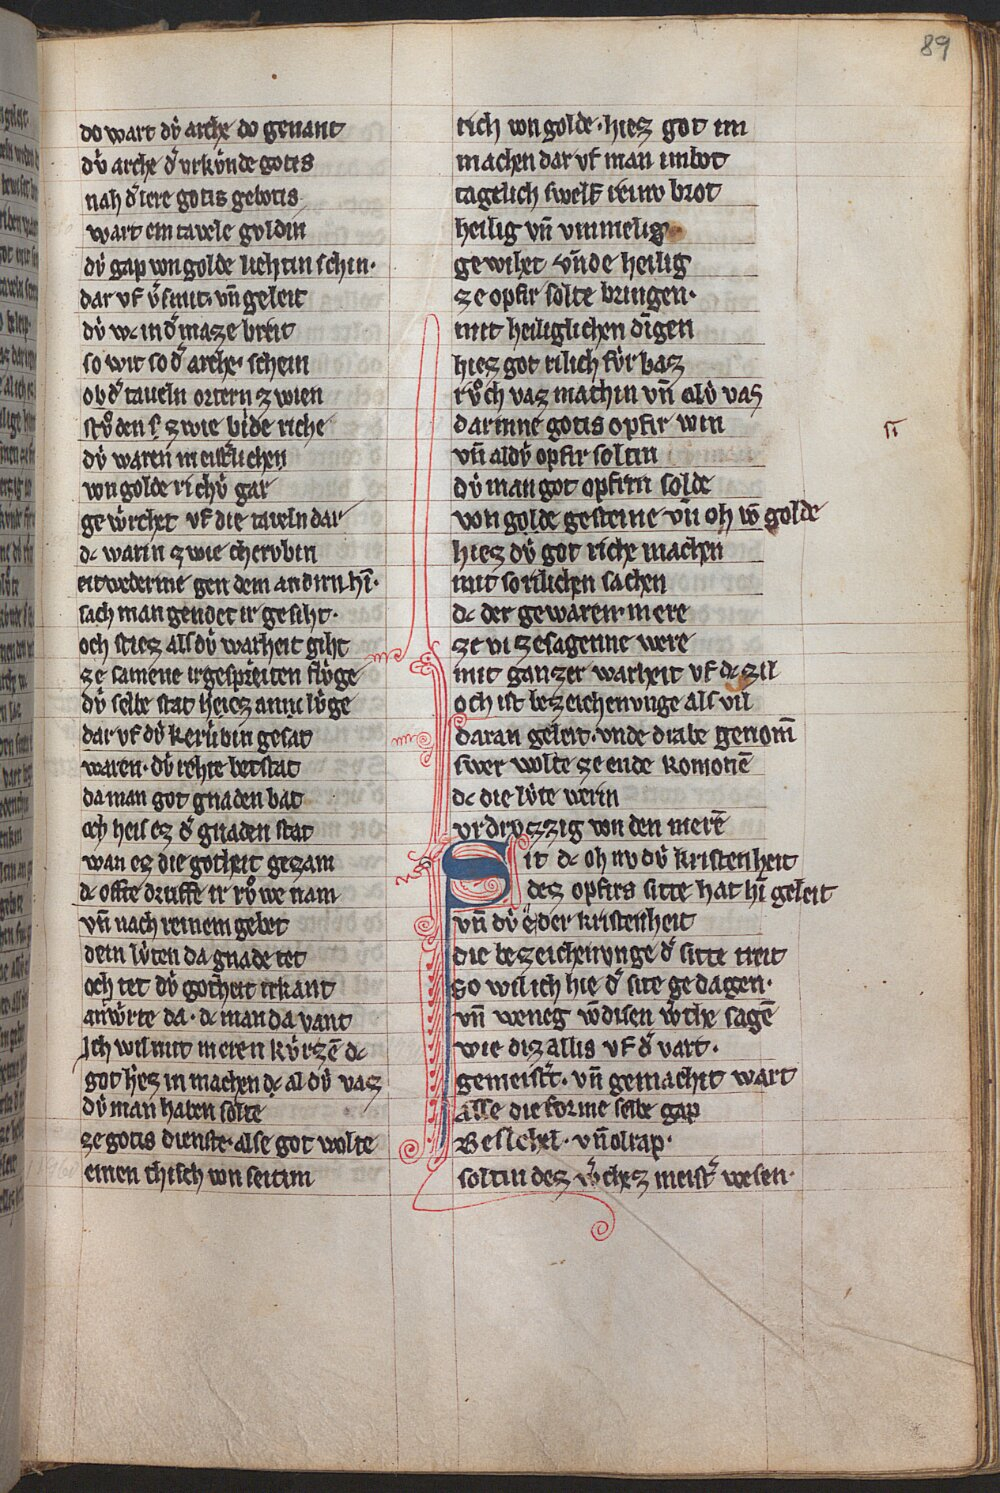 89
do wart dv̍ arche do genant
dv̍ arche d' vrkv̍nde gotes
nah d' lere gotis gebotis
wart ein tavele gvldin
dv̍ gap von golde liehtin schin·
dar vf v'smit· vn̄ geleit
dv̍ wc in d' maze breit
so wit so d' arche schein
ob d' taveln ortern zwein
stv̊den s zwie bide riche
dv̍ waren meist'lichen
von golde richv̍ gar
gewv̍rchet vf die taveln dar
dc warin zwie chervbin
eitwederme gen dem andirn hī·
sach man gendet ir gesiht·
och stiez als dv̍ warheit giht
ze samene ir gespreiten flv̍ge
dv̍ selbe stat hiez an lv̍ge
dar vf dv̍ kerubin gesat
waren· dv̍ rehte betstat
da man got gnaden bat
och heis ez d' gnaden stat
wan ez die gotheit gezam
dc offte druffe ir rv̊we nam
vn̄ nach reinem gebet
dein lv̍ten da gnade tet
och tet dv̍ gotheit irkant
antwv̍rte da· dc man da vant
Ich wil mit meren kv̍rzē dc
got hiez in machen dc al dv̍ vaz
dv̍ man haben solte
ze gotis dienste· alse got wolte
einen thisch von seitim
rich von golde· hiez got im
machen dar vf man imbot
tagelich swelf reinv brot
heilig vn̄ vnmeilig
gewihet vn̄de heilig
ze opfir solte bringen·
mit heiliglichen dingen
hiez got rilich fv̍r baz
rv̊ch vaz machin vn̄ alv̍ vas
darinne gotis opfir win
vn̄ aldv̍ opfir soltin
dv̍ man got opfirn solde
von golde gesteine vn̄ oh vō golde
hiez dv̍ got riche machen
mit sorilichen sachen
dc der gewaren mere
ze vil ze sagenne were
mit ganzer warheit vf dc zil
och ist bezeichenvnge als vil
daran geleit· vnde drabe genom̄
swer wolte ze ende komonē
dc die lv̍te werin
vrdrvzzig von den merē
Sit dc oh nv dv̍ kristenheit
dez opfirs sitte hat hī geleit
vn̄ dv̍ e der kristenheit
die bezeichenvnge d' sitte treit
So wil ich hie d' site gedagen·
vn̄ weneg vō disen w'che sagē
wie diz allis vf d' vart·
gemeist't· vn̄ gemachit wart
alse die forme selbe gap
Beslehel· vn̄ oliap·
soltin dez w'chez meist' wesen·